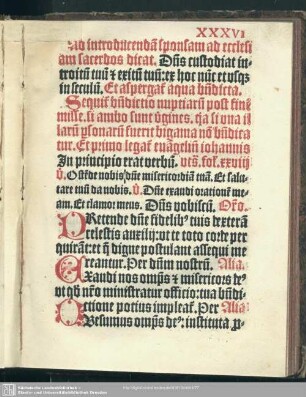 XXXVI
Ad introducendā sponsam ad ecclesi
am sacerdos dicat. Dn̄s custodiat in-
troitū tuū ⁊ exitū tuū: ex hoc nūc et vsqȝ
in seculū. Et aspergat aqua bn̄dicta.
Sequit̄ bn̄dictio nuptiarū post finē
misse. si ambo sunt v̄gines. q̄a si vna il
larū ꝑsonarū fuerit bigama nō bn̄dica
tur. Et primo legat̄ euāgeliū iohannis
In principio erat verbū. vt s̄. fol. xxviij
V̄. Ostēde nobis dn̄e misericordiā tuā. Et salu-
tare tuū da nobis. V̄. Dn̄e exaudi orationē me-
am. Et clamor meus. Dn̄s vobiscū. Or̄o.
PRetende dn̄e fidelibꝰ tuis dexterā
celestis auxilij: vt te toto corde per
quirāt: et q̄ digne postulant assequi me
reantur. Per dn̄m nostrū. Alia
EXaudi nos omīps ⁊ misericors deꝰ
vt qd̄ nr̄o ministratur officio: tua bn̄di-
ctione potius impleat̄. Per Alia
OBesumus omīps deꝰ: instituta ꝓ-